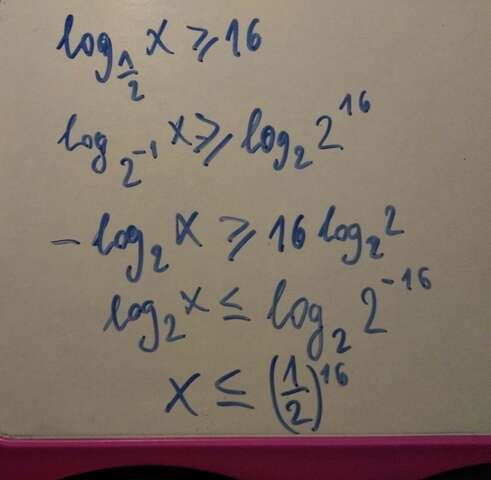 log_{1/2} x ⩾ 16
log_{2^{-1}} x ⩾ log_2 2^{16}
- log_2 x ⩾ 16 log_2 2
log_2 x ≤ log_2 2^{-16}
x ≤ (1/2)^{16}